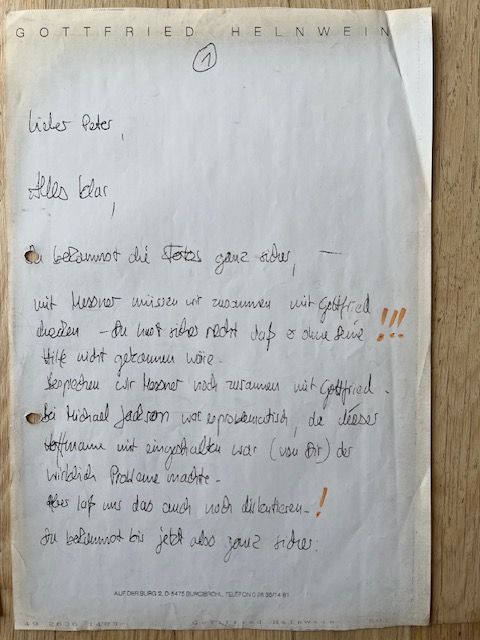 GOTTFRIED HELNWEIN
1
Lieber Peter,
Alles klar,
Du bekommst die Fotos ganz sicher, —
mit Messner müssen wir zusammen mit Gottfried
checken – Du hast sicher recht daß er ohne Deine !!!
Hilfe nicht gekommen wäre.
Besprechen wir Messner noch zusammen mit Gottfried.
Bei Michael Jackson war es problematisch, da dieser
Hoffmann mit eingeschalten war (von Dir) der
wirklich Probleme machte.
Aber laß uns das auch noch diskutieren. !
Du bekommst bis jetzt also ganz sicher:
AUF DER BURG 2, D-5475 BURGBROHL, TELEFON 0 26 36/14 81
49 2636 1483 Gottfried Helnwein